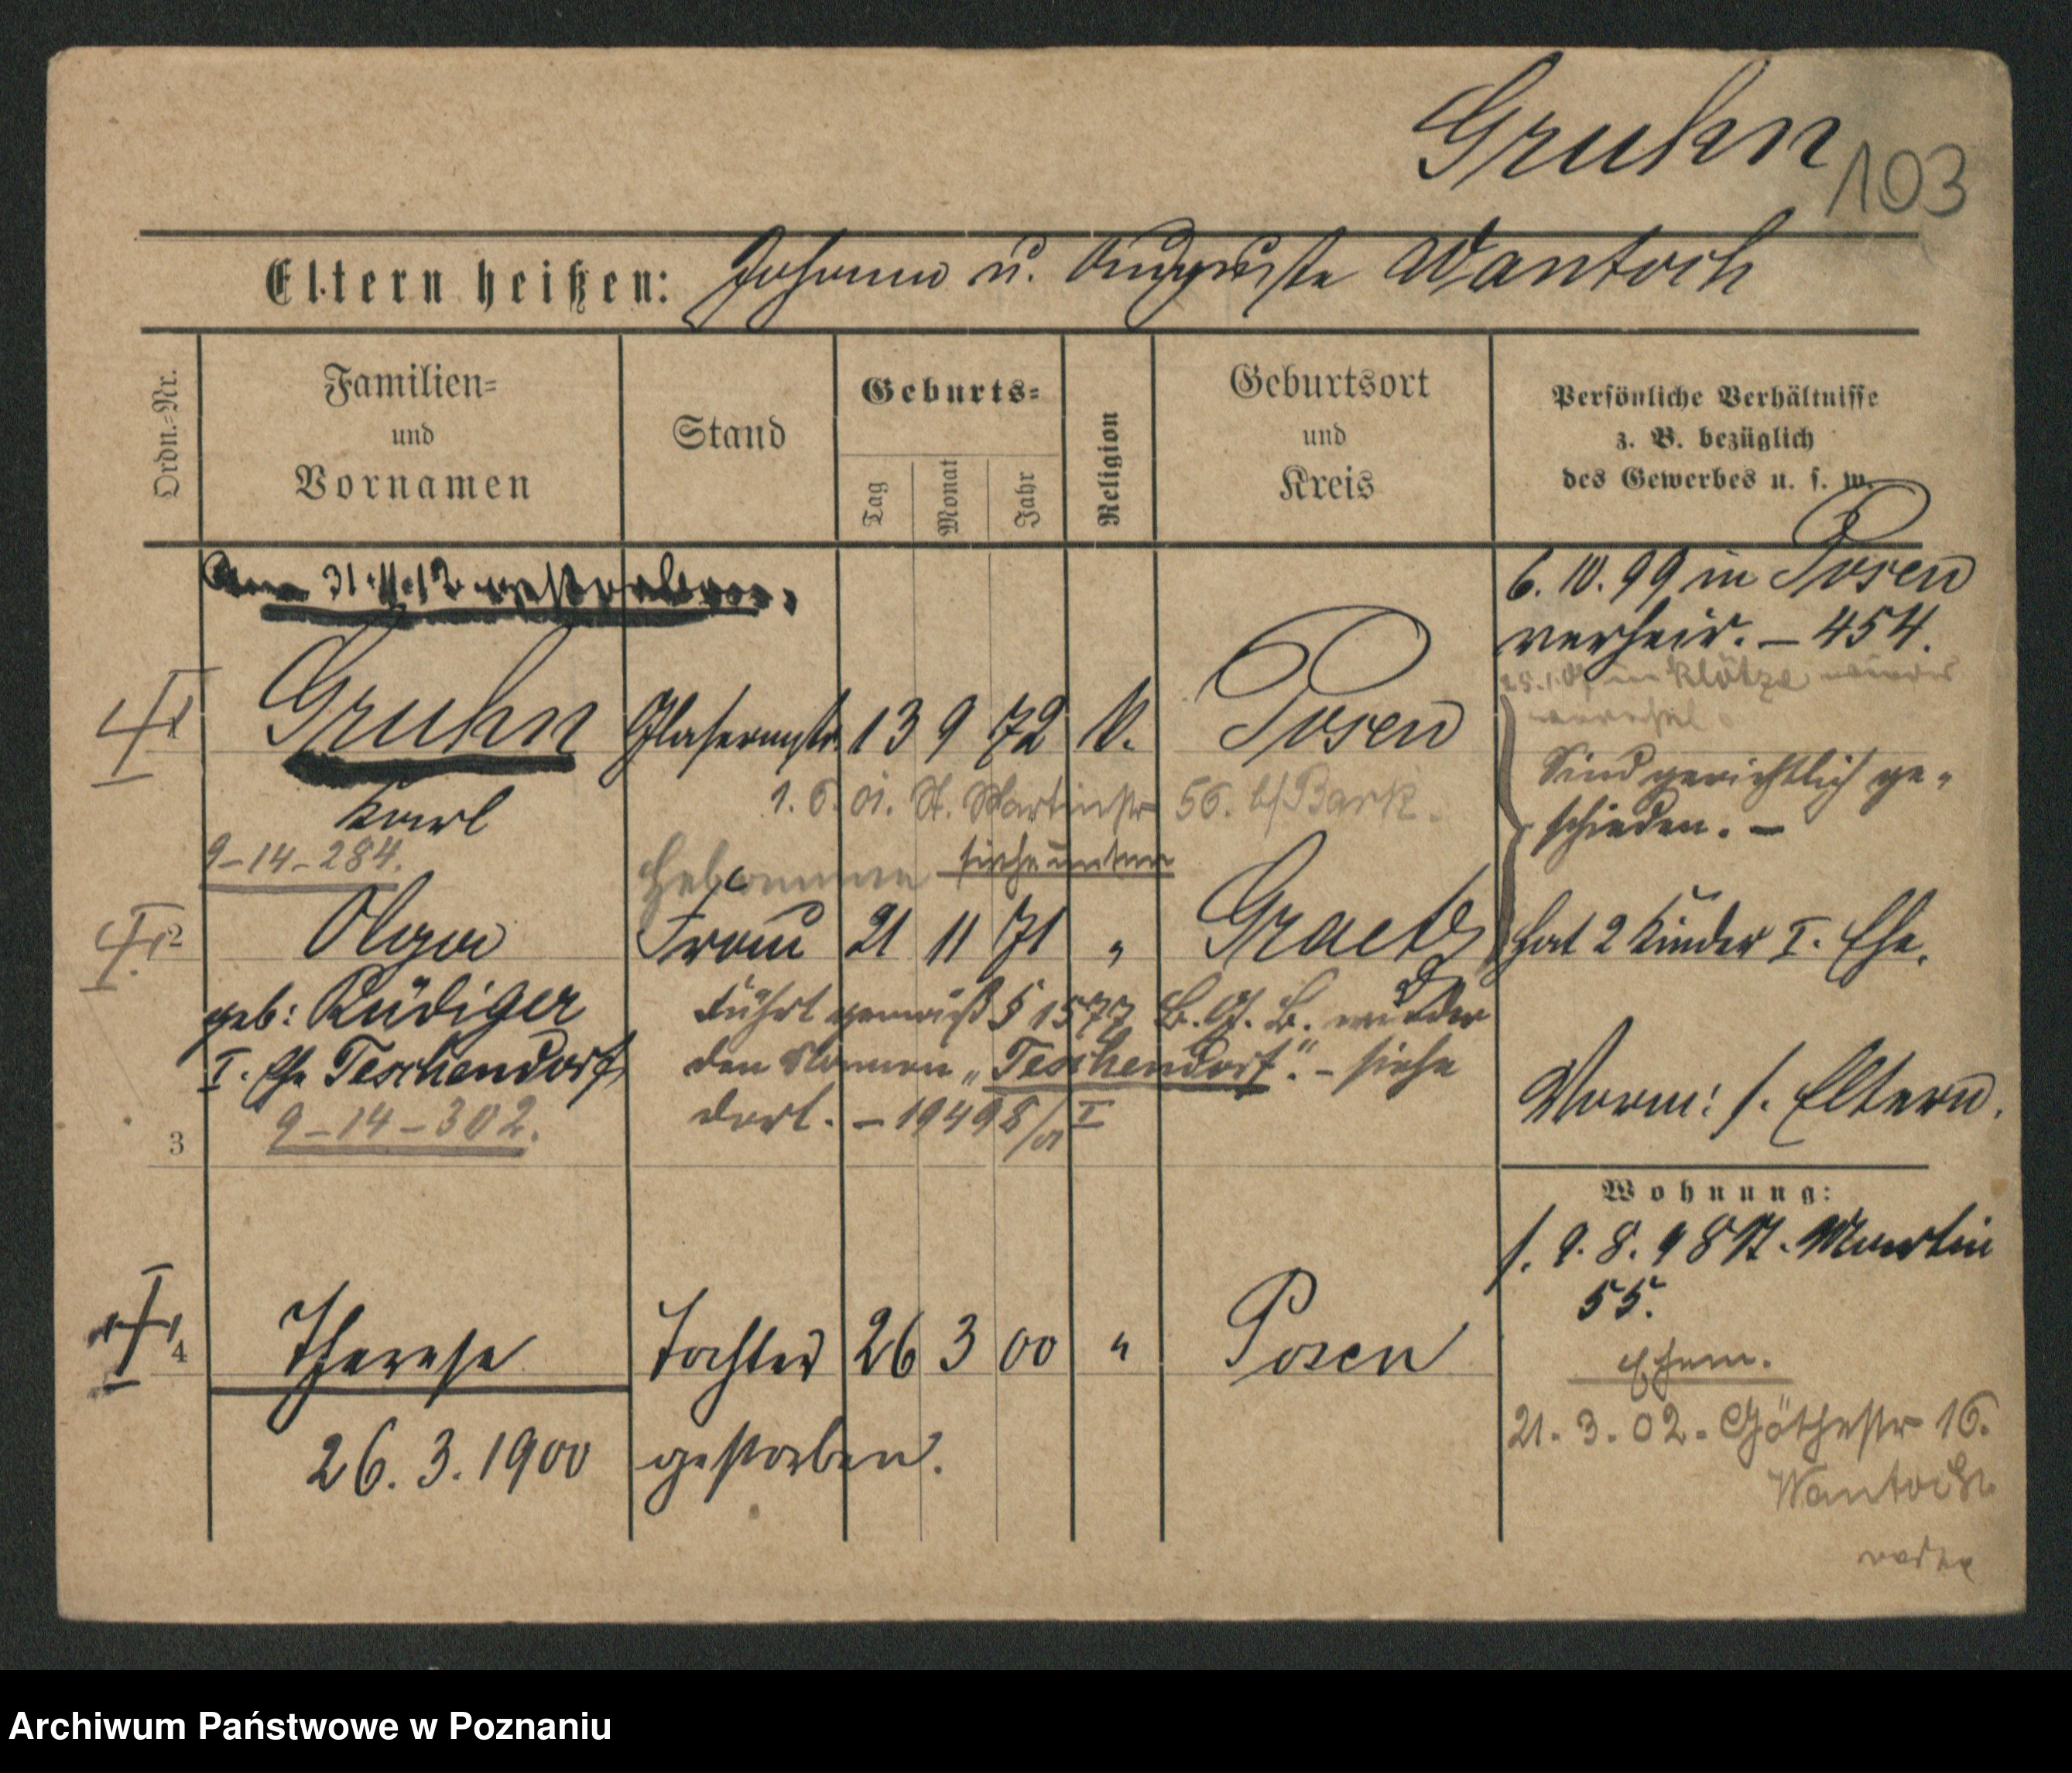 Gruhn
103
Eltern heißen: Johann u. Auguste Wantoch
Ordn.=Nr.
Familien=
und
Vornamen
Stand
Geburts=
Tag
Monat
Jahr
Religion
Geburtsort
und
Kreis
Persönliche Verhältnisse
z. B. bezüglich
des Gewerbes u. s. w.
Am 31.11.12 verstorben.
6. 10. 99 in Posen
verheir. – 454.
in Klötze wieder
1 Gruhn Glasermstr. 13 9 72 k. Posen
Karl
1. 6. 01. St. Martinstr 56. b/ Bark.
Sind gerichtlich ge-
schieden. –
9–14–284.
Hebamme siehe unten
2 Olga Frau 21 11 71 " Graetz
hat 2 Kinder I. Ehe.
geb: Rüdiger
I. Ehe Teschendorf
9–14–302.
führt gemäß § 1577 B. G. B. wieder
den Namen „Teschendorf". – siehe
dort. – 19498/01 I
Vorm: s. Eltern.
3
Wohnung:
f. 9. 8. 98 St. Martin
55.
4 Therese Tochter 26 3 00 " Posen
26. 3. 1900 gestorben.
Ehem.
21. 3. 02. Göthestr 16.
Wantoch
Archiwum Państwowe w Poznaniu